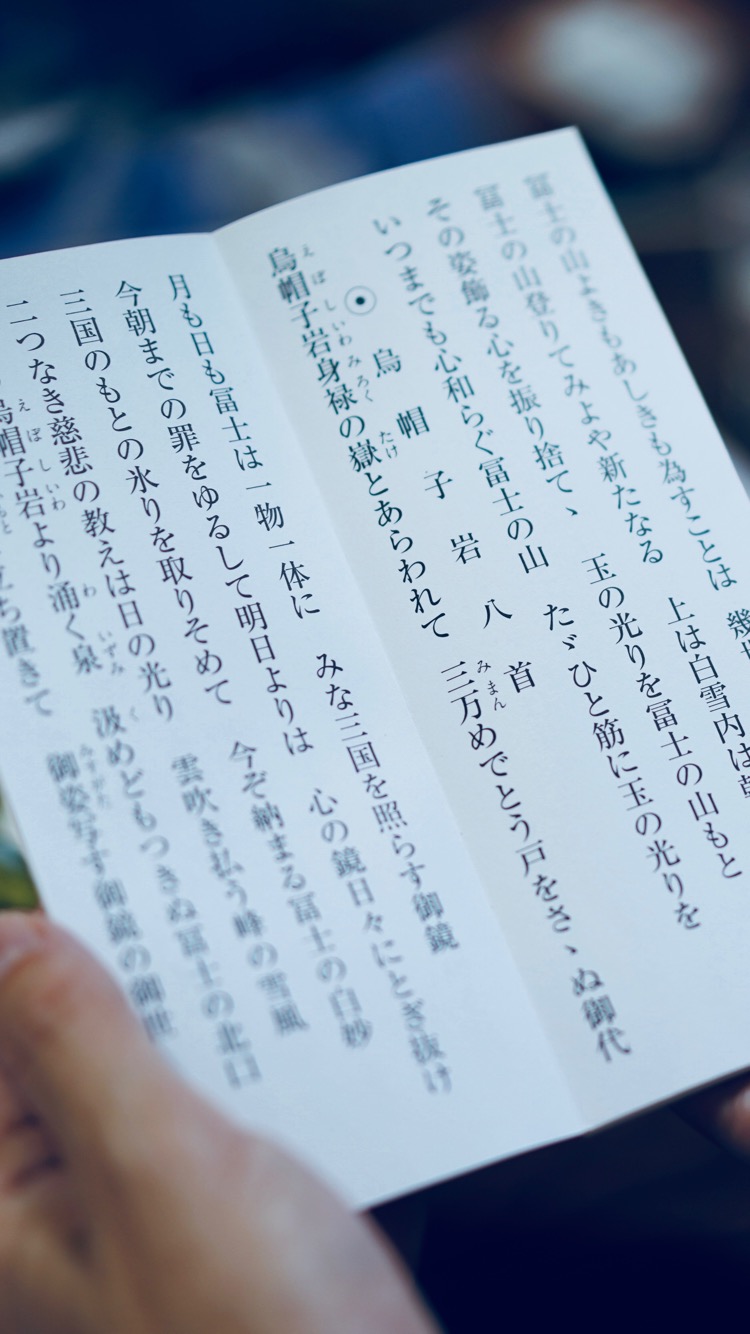 冨士の山よきもあしきも為すことは
冨士の山登りてみよや新たなる　上は白雪内は
その姿飾る心を振り捨てゝ　玉の光りを冨士の山もと
いつまでも心和らぐ冨士の山　たゞひと筋に玉の光りを
⦿　烏帽子岩八首
えぼしいわみろく　たけ　みまん
烏帽子岩身禄の嶽とあらわれて　三万めでとう戸をさゝぬ御代
月も日も冨士は一物一体に　みな三国を照らす御鏡
今朝までの罪をゆるして明日よりは　心の鏡日々にとぎ抜け
三国のもとの氷りを取りそめて　今ぞ納まる冨士の白妙
二つなき慈悲の教えは日の光り　雲吹き払う峰の雪風
えぼしいわ　わ　いずみ　く
烏帽子岩より涌く泉　汲めどもつきぬ冨士の北口
みすがた
立ち置きて　御姿写す御鏡の御世